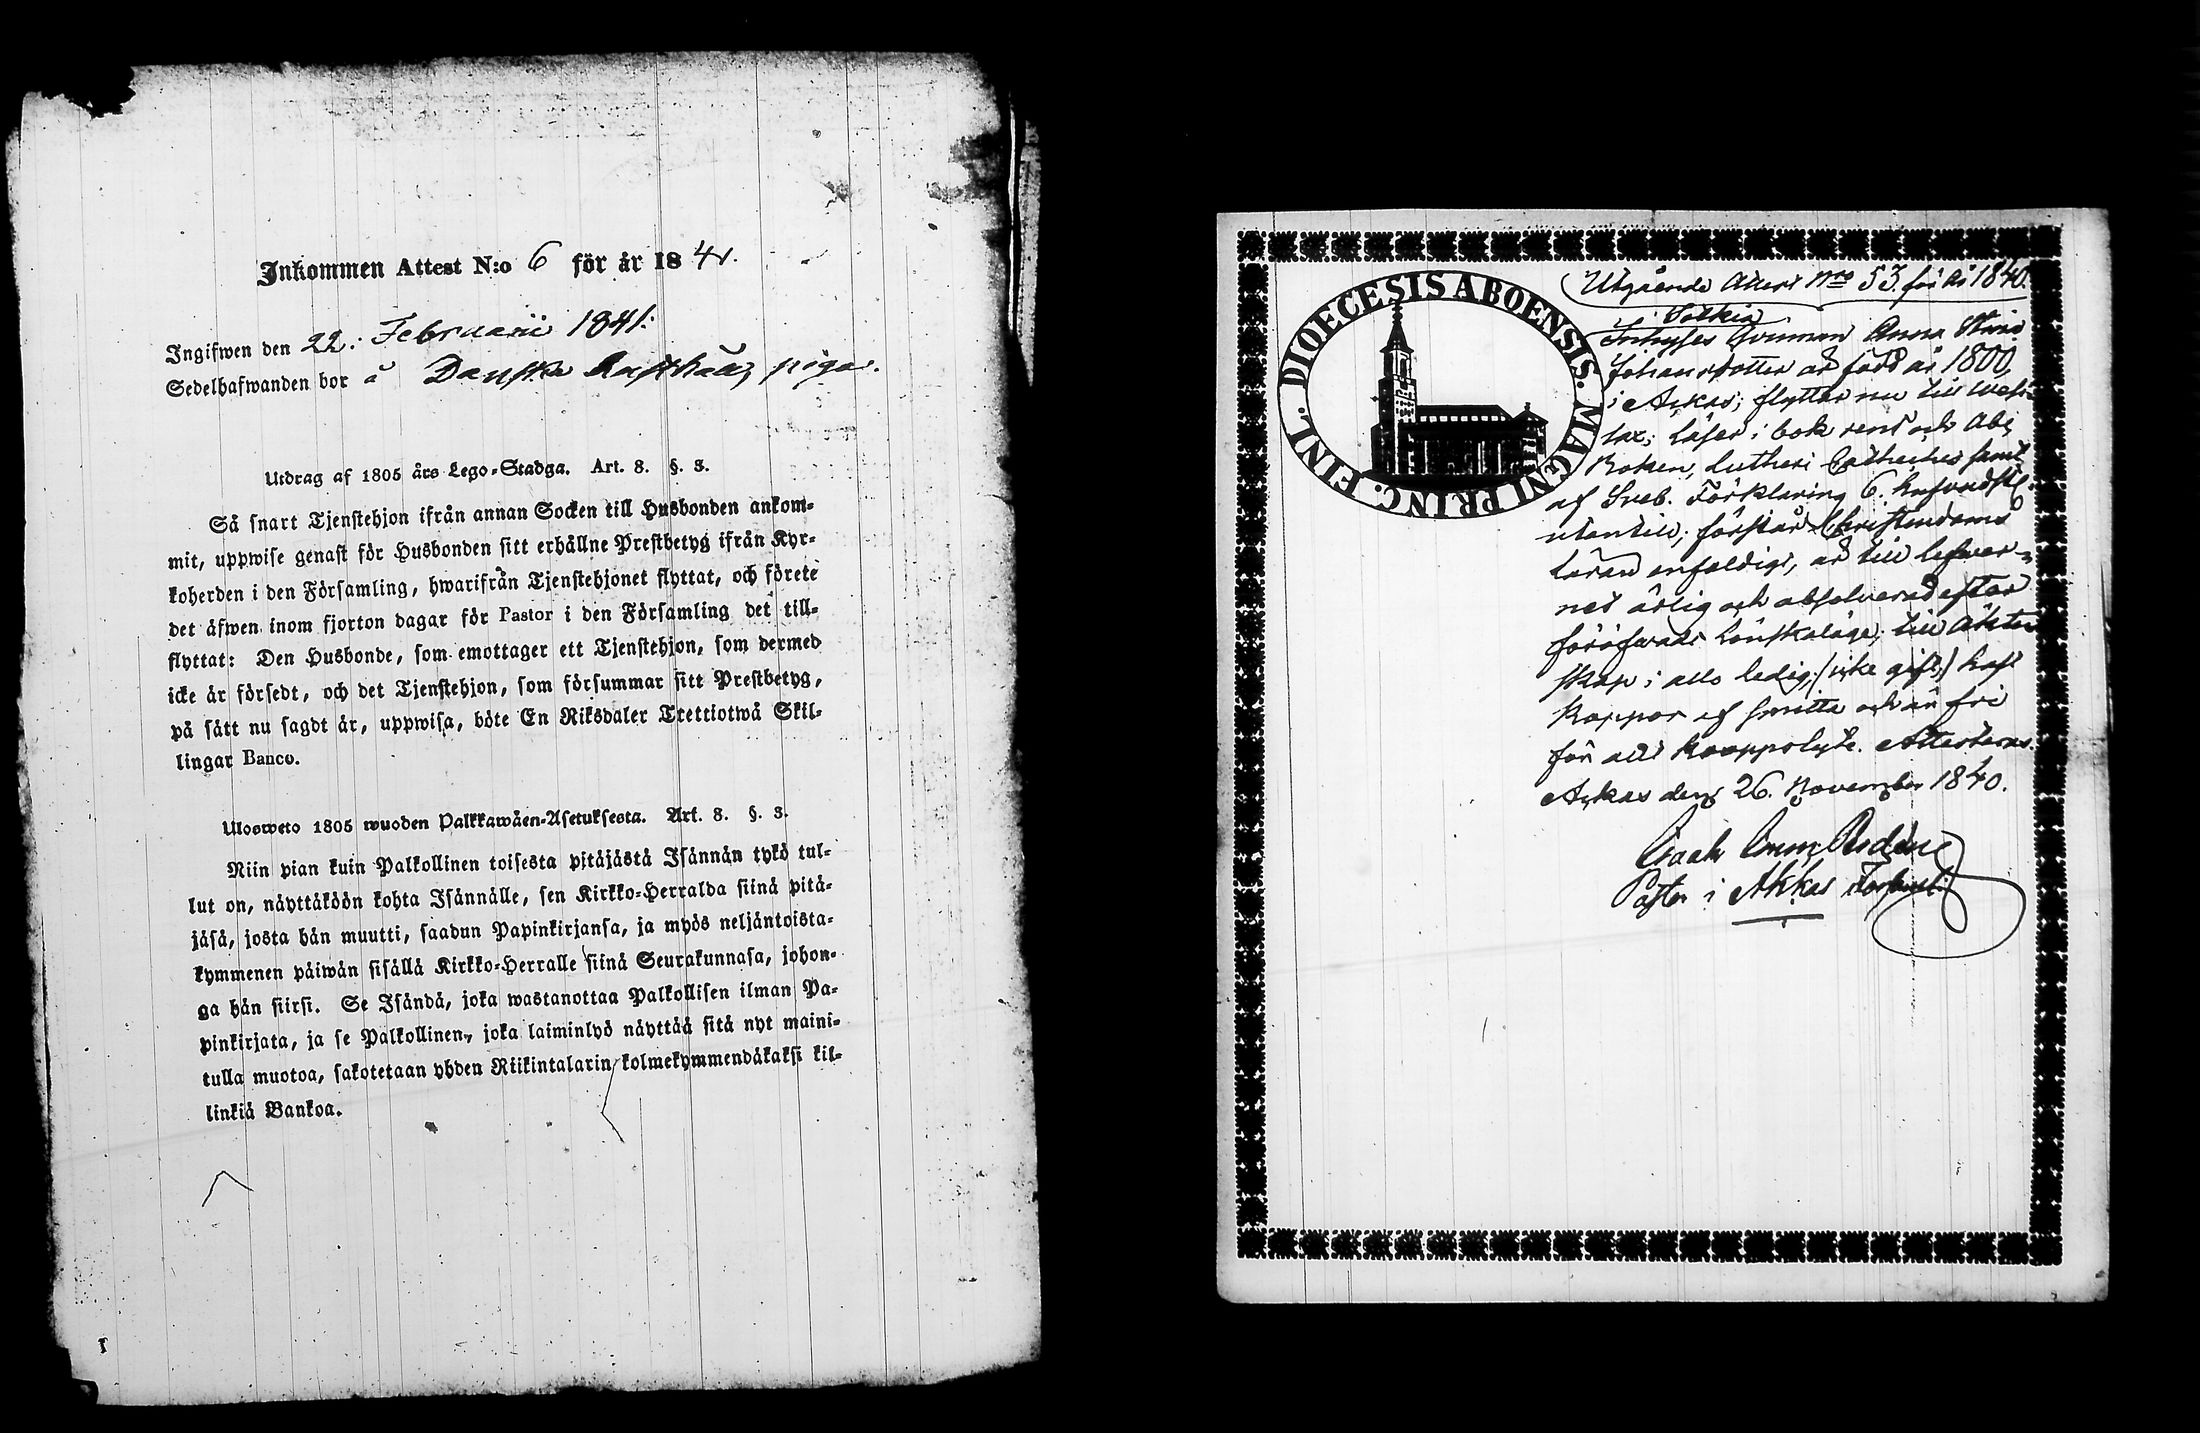 Inkommen Attest N:o 6 för år 1841.
Ingifwen den 22: Februarii 1841:
Sedelhafwanden bor å Danska Rusthåll, piga.
Utdrag af 1805 års Lego-Stadga. Art. 8. §. 3.
Så snart Tjenstehjon ifrån annan Socken till Husbonden ankom-
mit, uppwise genast för Husbonden sitt erhållne Prestbetyg ifrån Kyr-
koherden i den Församling, hwarifrån Tjenstehjonet flyttat, och förete
det äfwen inom fjorton dagar för Pastor i den Församling det till-
flyttat: Den Husbonde, som emottager ett Tjenstehjon, som dermed
icke är försedt, och det Tjenstehjon, som försummar sitt Prestbetyg,
på sätt nu sagdt är, uppwisa, böte En Riksdaler Trettiotwå Skil-
lingar Banco.
Ulosweto 1805 wuoden Palkkawäen-Asetuksesta. Art. 8. §. 3.
Niin pian kuin Palkollinen toisesta pitäjästä Isännän tykö tul-
lut on, näyttäköön kohta Isännälle, sen Kirkko-Herralda siinä pitä-
jäsä, josta hän muutti, saadun Papinkirjansa, ja myös neljäntoista-
kymmenen päiwän sisällä Kirkko-Herralle siinä Seurakunnasa, johon-
ga hän siirsi. Se Isändä, joka wastanottaa Palkollisen ilman Pa-
pinkirjata, ja se Palkollinen, joka laiminlyö näyttää sitä nyt maini-
tulla muotoa, sakotetaan yhden Riikintalarin kolmekymmendäkaksi kil-
linkiä Bankoa.
DIOECESIS ABOENSIS. MAGNI PRINC. FINL.
Utgående Attest Nro 53 för år 1840.
Inhyses Qvinnan Anna Stina
Johansdotter är född år 1800
i Ackas; flyttar nu till
läser i bok rent och Abc
Boken, Lutheri Catheches samt
af Sveb. Förklaring 6. hufvudst.
utantill; förstår Christendoms
läran enfaldigt, är till lefwer-
net ärlig och absolverad efter
föröfwadt Lönskaläge; till äkten
skap i allo ledig, (icke gift,) haft
koppor af smitta och är fri
för allt kopplyte. Attesteras.
Ackas den 26. November 1840.
Isaak
Pastor i Akkas Församl: